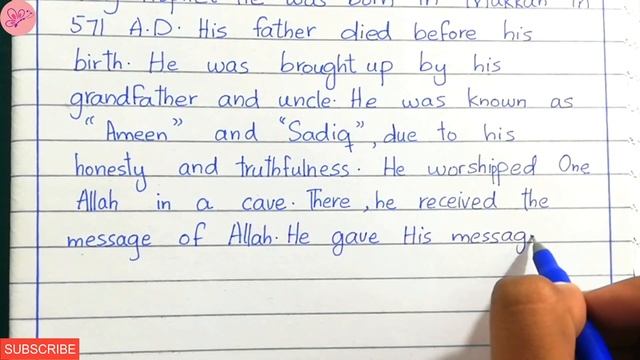 He was born in Makkah in
571 A.D. His father died before his
birth. He was brought up by his
grandfather and uncle. He was known as
"Ameen" and "Sadiq", due to his
honesty and truthfulness. He worshipped One
Allah in a cave. There, he received the
message of Allah. He gave His messag
SUBSCRIBE